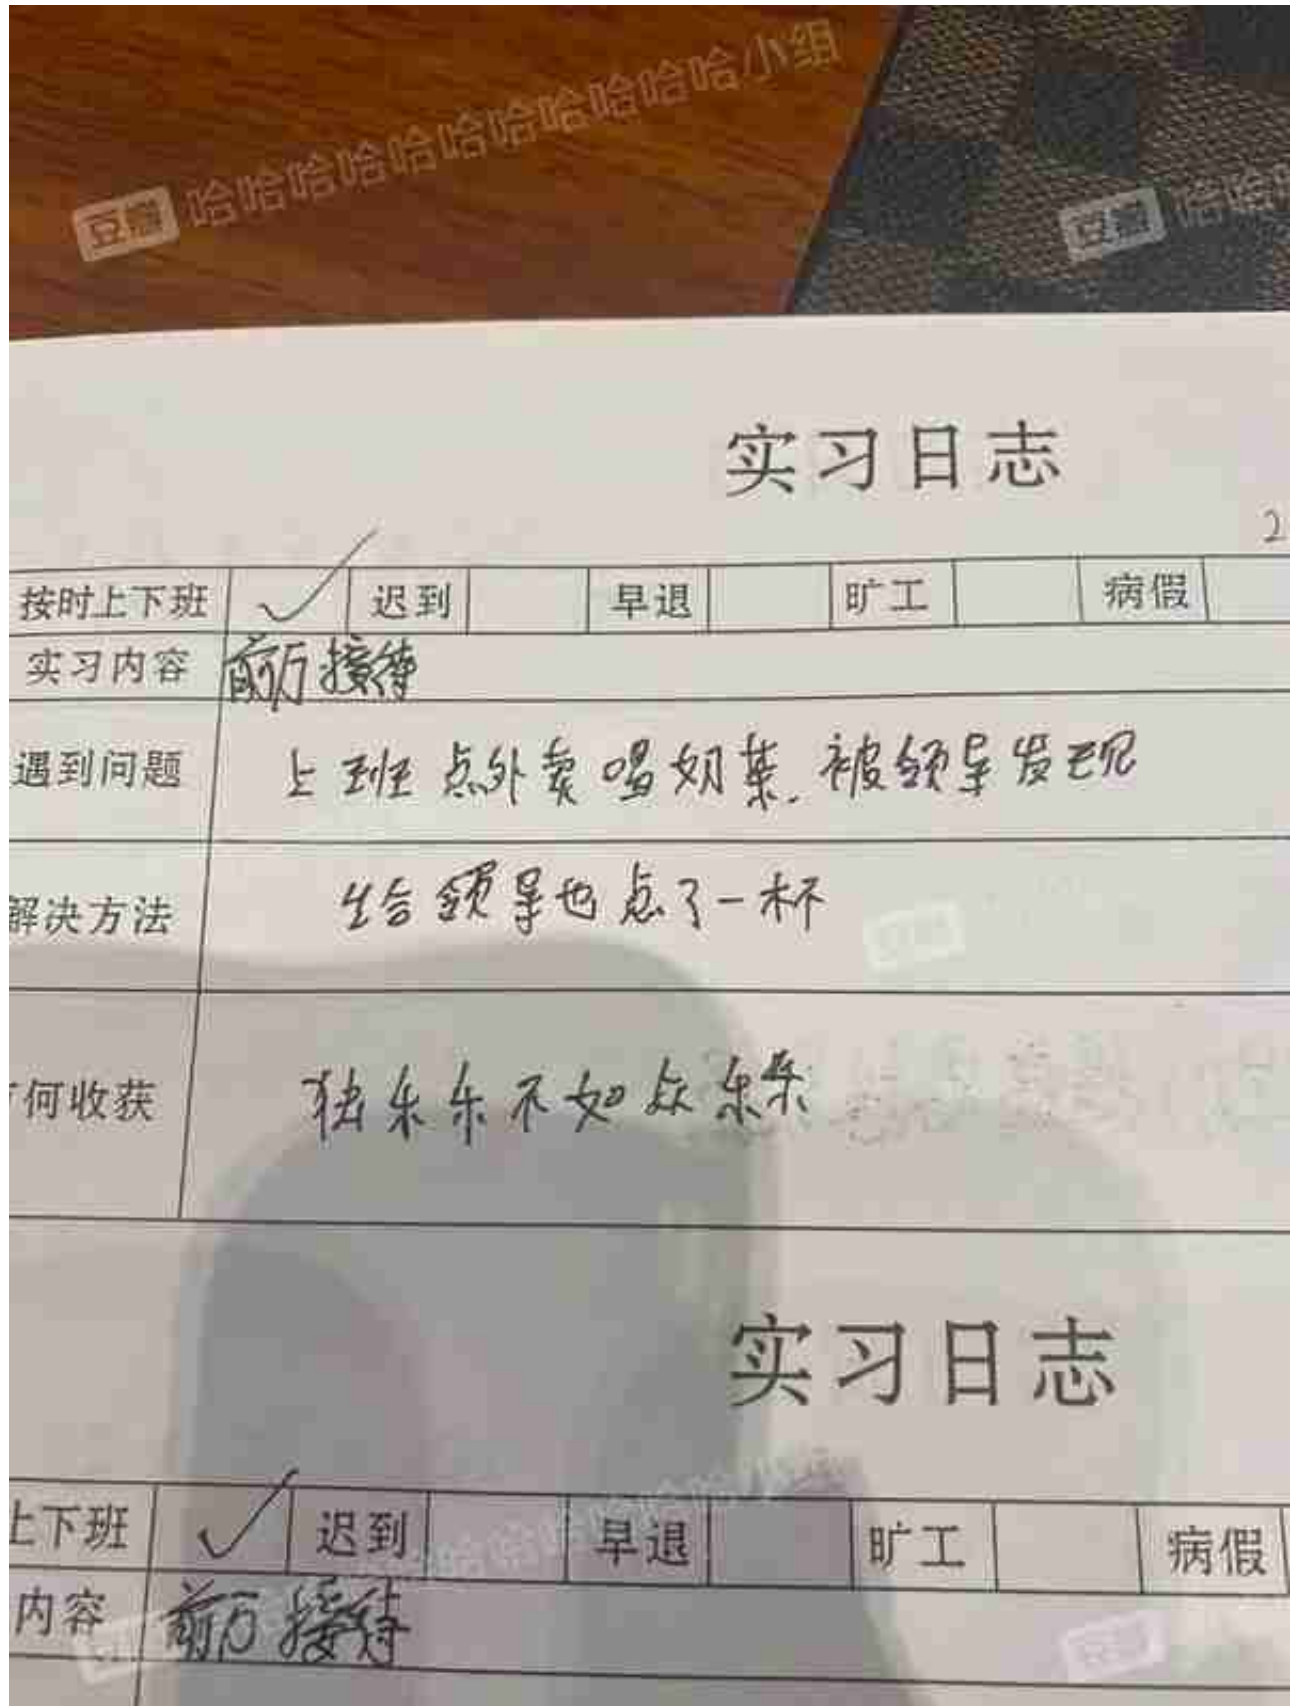 豆瓣 哈哈哈哈哈哈哈哈哈哈哈小组
豆瓣 哈哈
实习日志
2
按时上下班 ✓ 迟到 早退 旷工 病假
实习内容 前厅接待
遇到问题 上班点外卖喝奶茶.被领导发现
解决方法 给领导也点了一杯
何收获 独乐乐不如众乐乐
实习日志
上下班 ✓ 迟到 早退 旷工 病假
内容 前厅接待